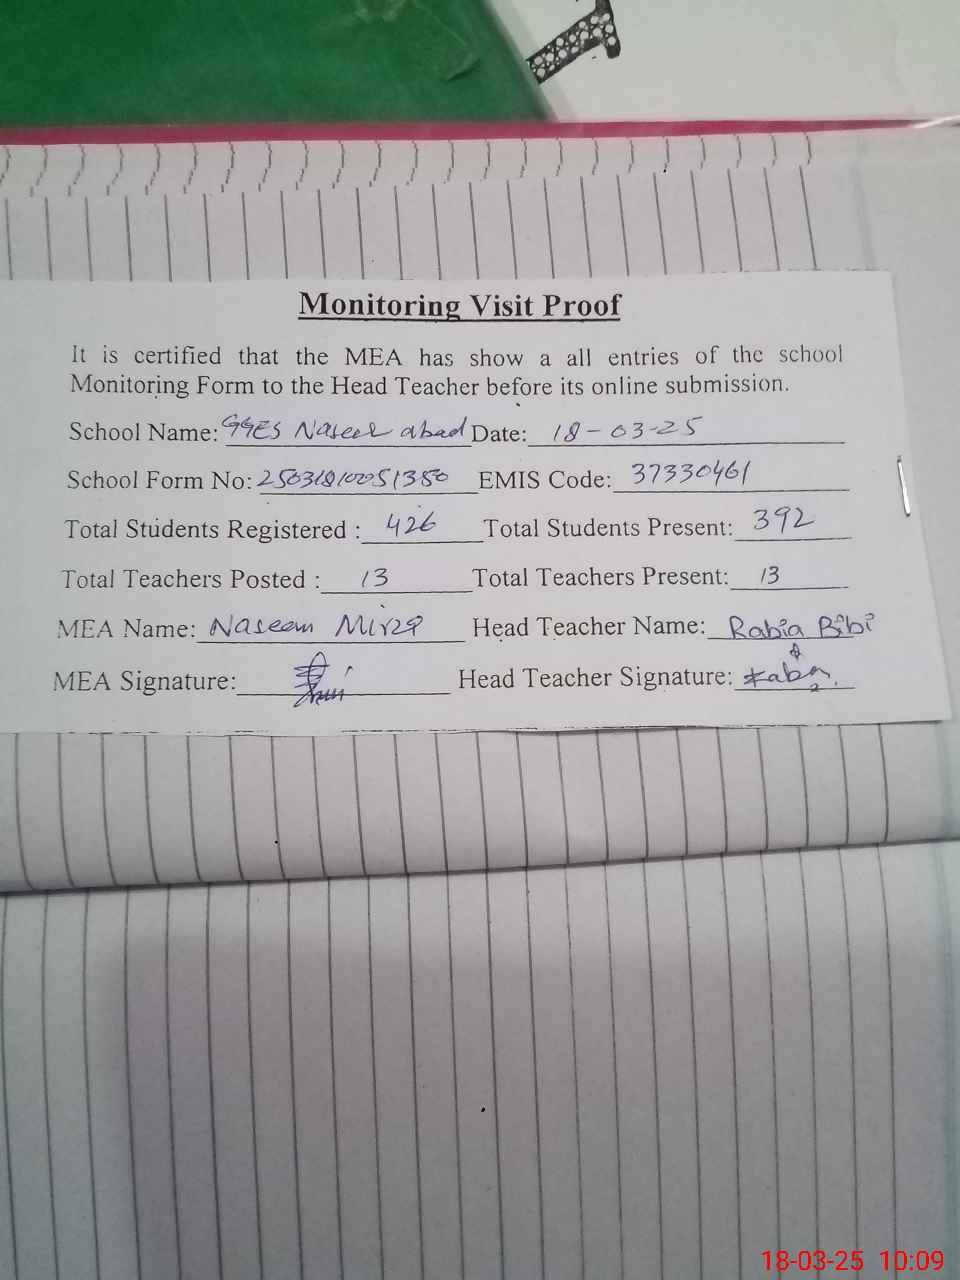 Monitoring Visit Proof
It is certified that the MEA has show a all entries of the school
Monitoring Form to the Head Teacher before its online submission.
School Name: GGES Naseer abad Date: 18-03-25
School Form No: EMIS Code: 37330461
Total Students Registered : 426 Total Students Present: 392
Total Teachers Posted : 13 Total Teachers Present: 13
MEA Name: Naseem Mirza Head Teacher Name: Rabia Bibi
MEA Signature: Head Teacher Signature:
18-03-25 10:09